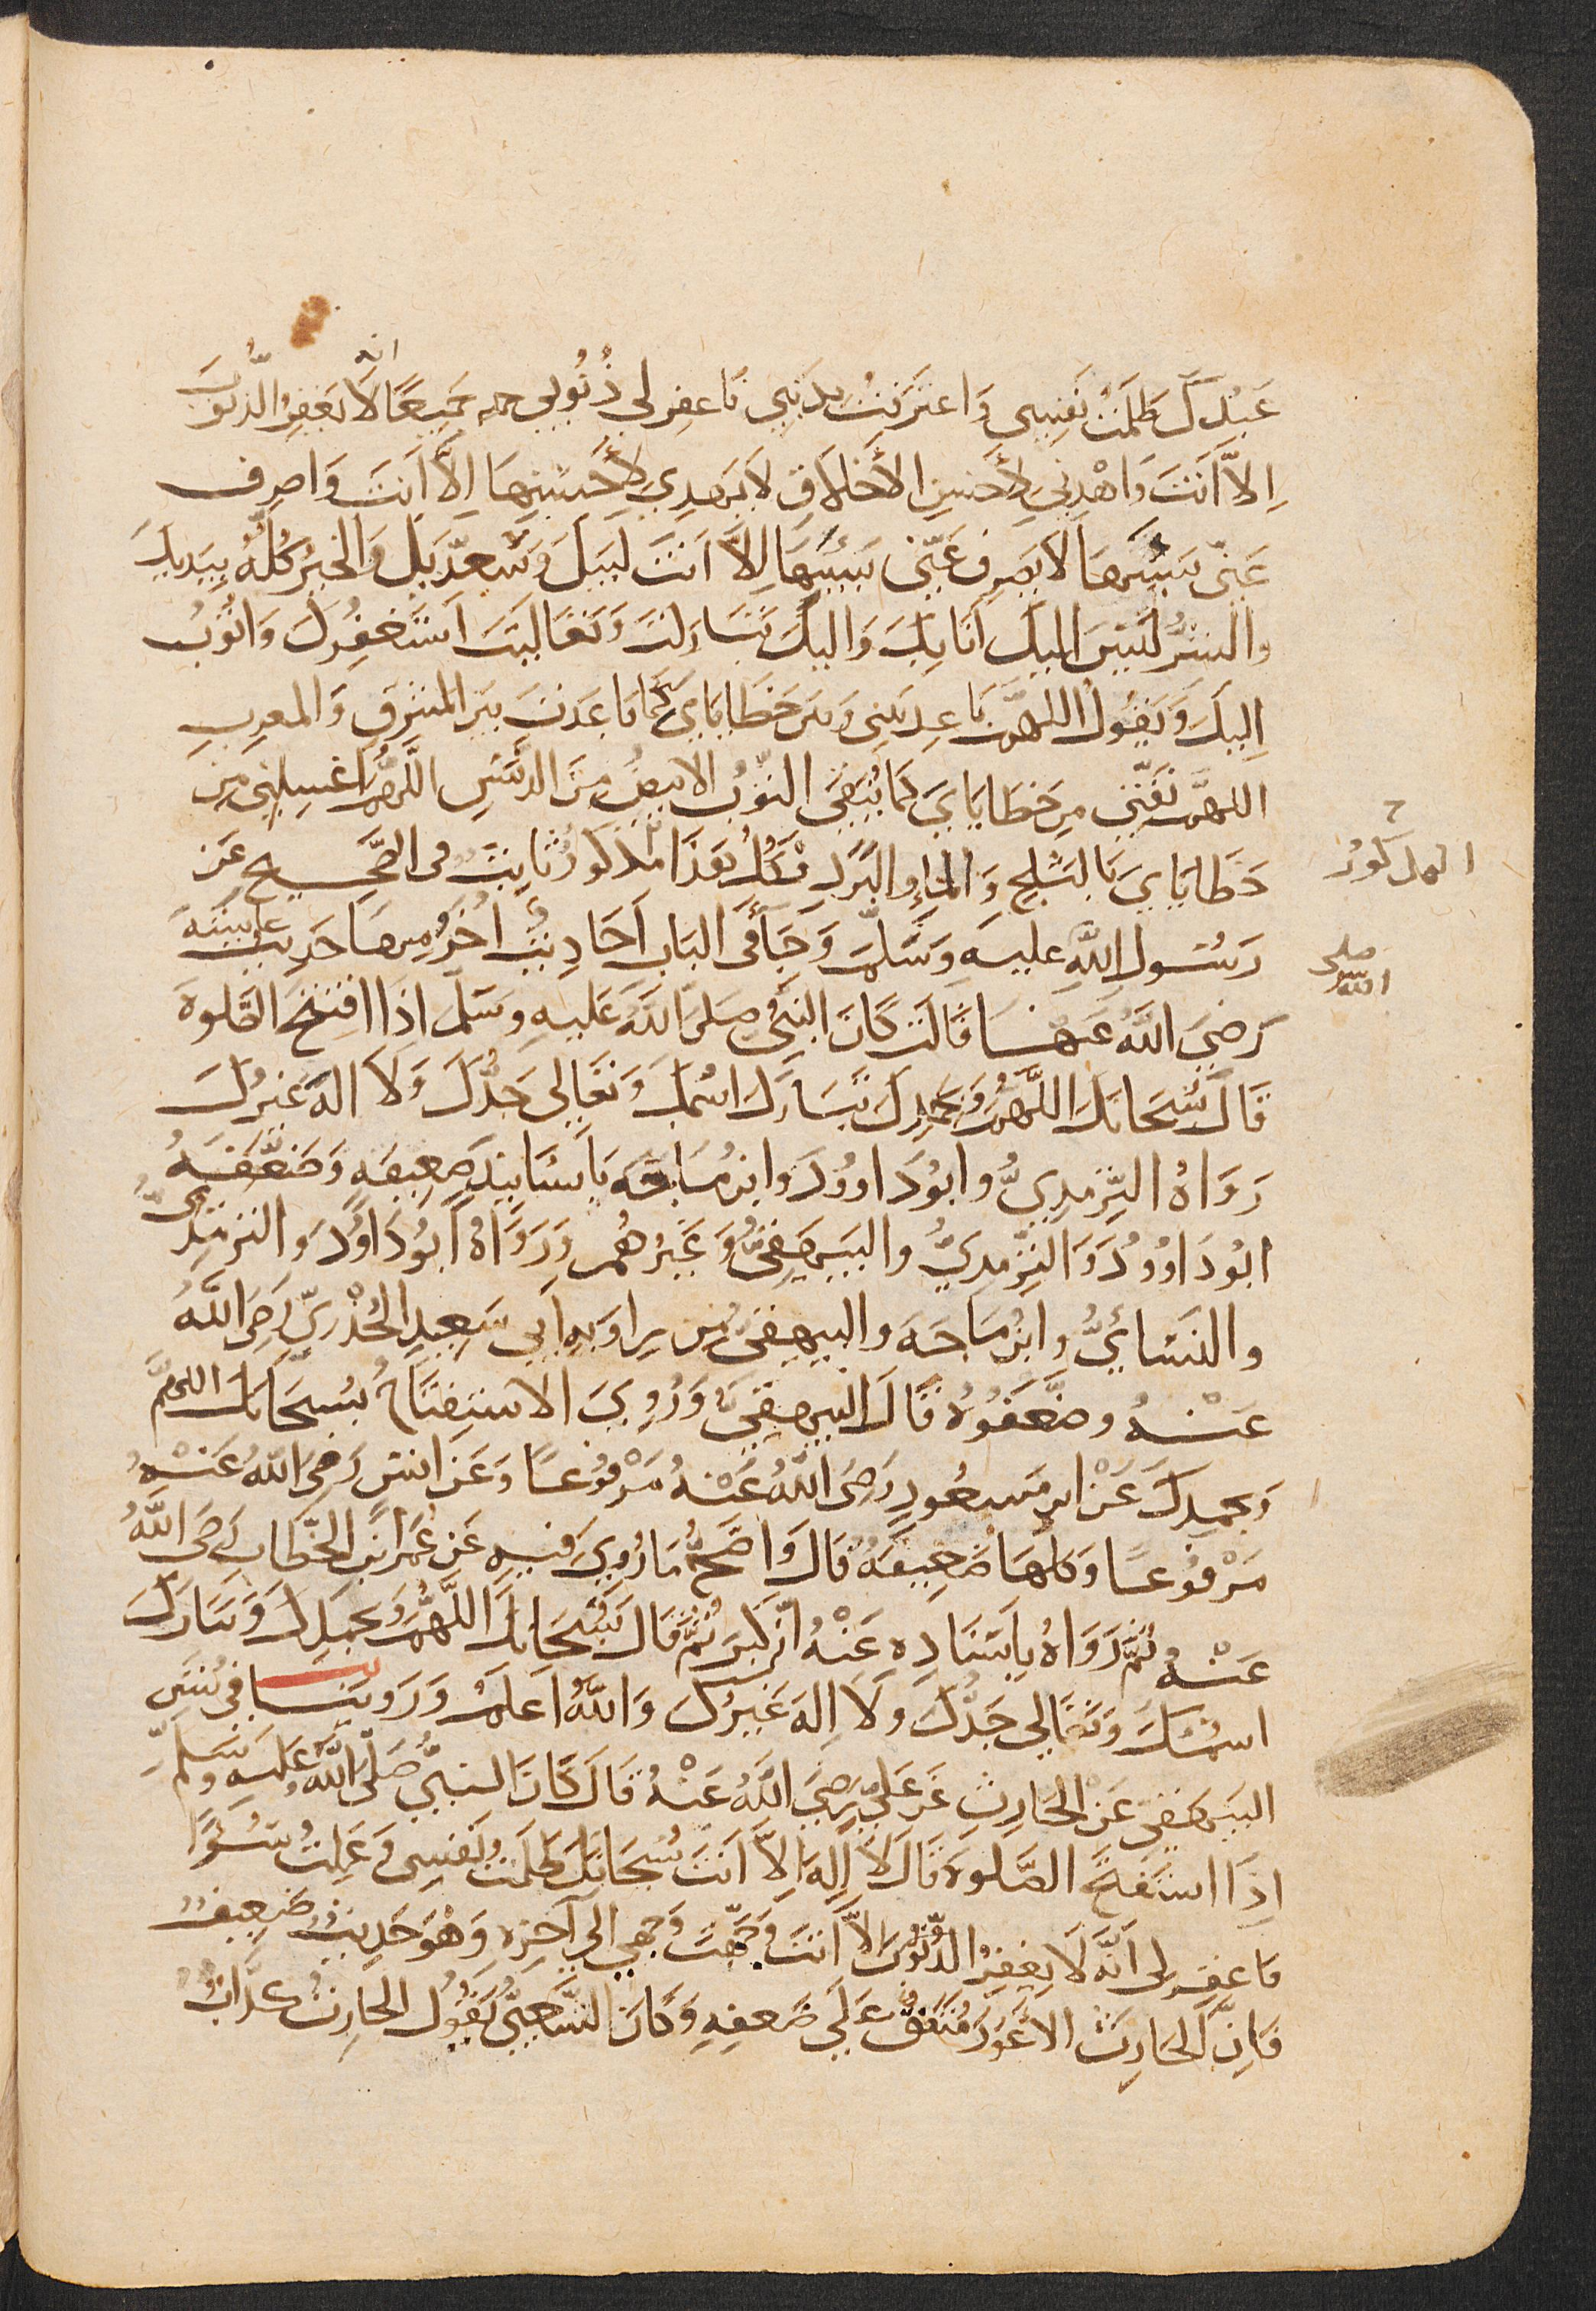 عَبْدُكَ ظَلَمْتُ نَفْسِي وَاعْتَرَفْتُ بِذَنْبِي فَاغْفِر لِي ذُنُوبِي جَمِيعًا لَا يَغْفِرُ الذُّنُوبَ
انه
اِلَّا اَنْتَ وَاهْدِنِي لِأَحْسَنِ الأَخْلَاقِ لَا يَهْدِي لِأَحْسَنِهَا اِلَّا اَنْتَ وَاصْرِف
عَنّي سَيِّئَهَا لَا يَصْرِفُ عَنّي سَيِّئَهَا اِلَّا اَنْتَ لَبَّيْكَ وَسَعْدَيْكَ وَالخَيْرُ كُلُّهُ بِيَدَيْكَ
والشَّرُّ لَيْسَ اِلَيْكَ اَنَا بِكَ وَاِلَيْكَ تَبَارَكْتَ وَتَعَالَيْتَ اَسْتَغْفِرُكَ وَاَتُوبُ
اِلَيْكَ وَيَقُولُ اللهُمَّ بَاعِدْ بَيْنِي وَبَيْنَ خَطَايَايَ كَمَا بَاعَدْتَ بَيْنَ المَشْرِقِ وَالمَغْرِبِ
اللهُمَّ نَقِّنِي مِنْ خَطَايَايَ كَمَا يُنَقَّى الثَّوْبُ الابْيَضُ مِنَ الدَّنَسِ اللَّهُمَّ اغْسِلْنِي مِنْ
خَطَايَايَ بَالثَّلْجِ وَالمَاءِ وَالبَرَدِ فَكُلُّ هَذَا مَذكُورٌ ثَابِتٌ فى الصَّحِيحِ عَنْ
المذكور
رَسُولِ اللَّهِ عليه وَسَلَّمَ وَجَآءَ فى البَابِ اَحَادِيثُ اُخَرُ مِنهَا حَدِيثُ عايشَةَ
صلى الله
رَضِيَ اللهُ عَنْهَا قَالَتْ كَانَ النَبِيُّ صَلَّى اللهُ عَلَيهِ وسَلَّمَ اِذَا افْتَتَحَ الصَّلَوةَ
قَالَ سُبْحَانَكَ اللَّهُمَّ وَبِحَمْدِكَ تَبَارَكَ اسْمُكَ وَتَعَالى جَدُّكَ وَلا الهَ غَيرُكَ
رَوَاهُ التِّرمِذِيُّ وابُو دَاوُودَ وابنُ مَاجَه بِاَسَانِيدَ ضَعِيفَةٍ وَضَعَّفَهُ
ابُو دَاوُودَ وَالتِّرمِذِيُّ والبَيهَقِيُّ وَغَيْرُهُم وَرَوَاهُ اَبُو دَاوُدَ والترمِذِيُّ
والنَسَائِيُّ وابنُ مَاجَه والبيهقىُّ مِن رِوَايَةِ اَبي سَعِيدِ الخُدْرِيِّ رَضِيَ اللهُ
عَنْهُ وضَعَّفُوهُ قَالَ البيهقِيُّ وَرُوِيَ الاسْتِفتَاحُ بسُبْحَانَكَ اللهُمَّ
وبِحَمدِكَ عَنْ ابنِ مَسعُودٍ رَضِيَ اللهُ عَنْهُ مَرْفُوعًا وَعَن اَنَسٍ رَضِيَ اللهُ عَنْهُ
مَرْفُوعًا وكلُّهَا ضَعِيفَةٌ قَالَ وَاَصَحُّ مَا رُوِيَ فيهِ عَن عُمَرَ ابنِ الخَطَّابِ رَضِيَ اللهُ
عَنْهُ ثُمَّ رَوَاهُ بِاِسْنَادِهِ عَنْهُ اَنّه كَبَّرَ ثُمَّ قَالَ سُبْحَانَكَ اللَّهُمَّ وَبِحَمدِكَ وَتَبَارَكَ
اسْمُكَ وَتَعَالي جَدُّكَ وَلَا اِلهَ غَيْرُكَ وَاللهُ اَعْلَمُ وَرَوينَا في سُنَنِ
البَيهَقِي عَنْ الحَارِثِ عَن عَليٍّ رَضِيَ اللهُ عَنْهُ قَالَ كَانَ النبيُّ صَلَّى اللهُ عَلَيهِ وسَلَّمَ
اِذَا اسْتَفْتَحَ الصَّلَوةَ قَالَ لَا اِلَهَ اِلَّا اَنْتَ سُبْحَانَكَ ظَلَمْتُ نَفْسِي وَعَمِلْتُ سُوءًا
فَاغْفِر لى اَنَّهُ لَا يَغفِرُ الذُّنُوبَ اِلاَّ اَنْتَ وَجَّهْتُ وَجْهِي الي آخِرِهِ وَهُوَ حَدِيثٌ ضَعِيفٌ
فَاِنَّ الحَارِثَ الاعْوَرَ مُتَّفَقٌ عَلَي ضَعفِهِ وَكَانَ الشَّعْبِيُّ يَقُولُ الحَارِثُ كذَّابٌ